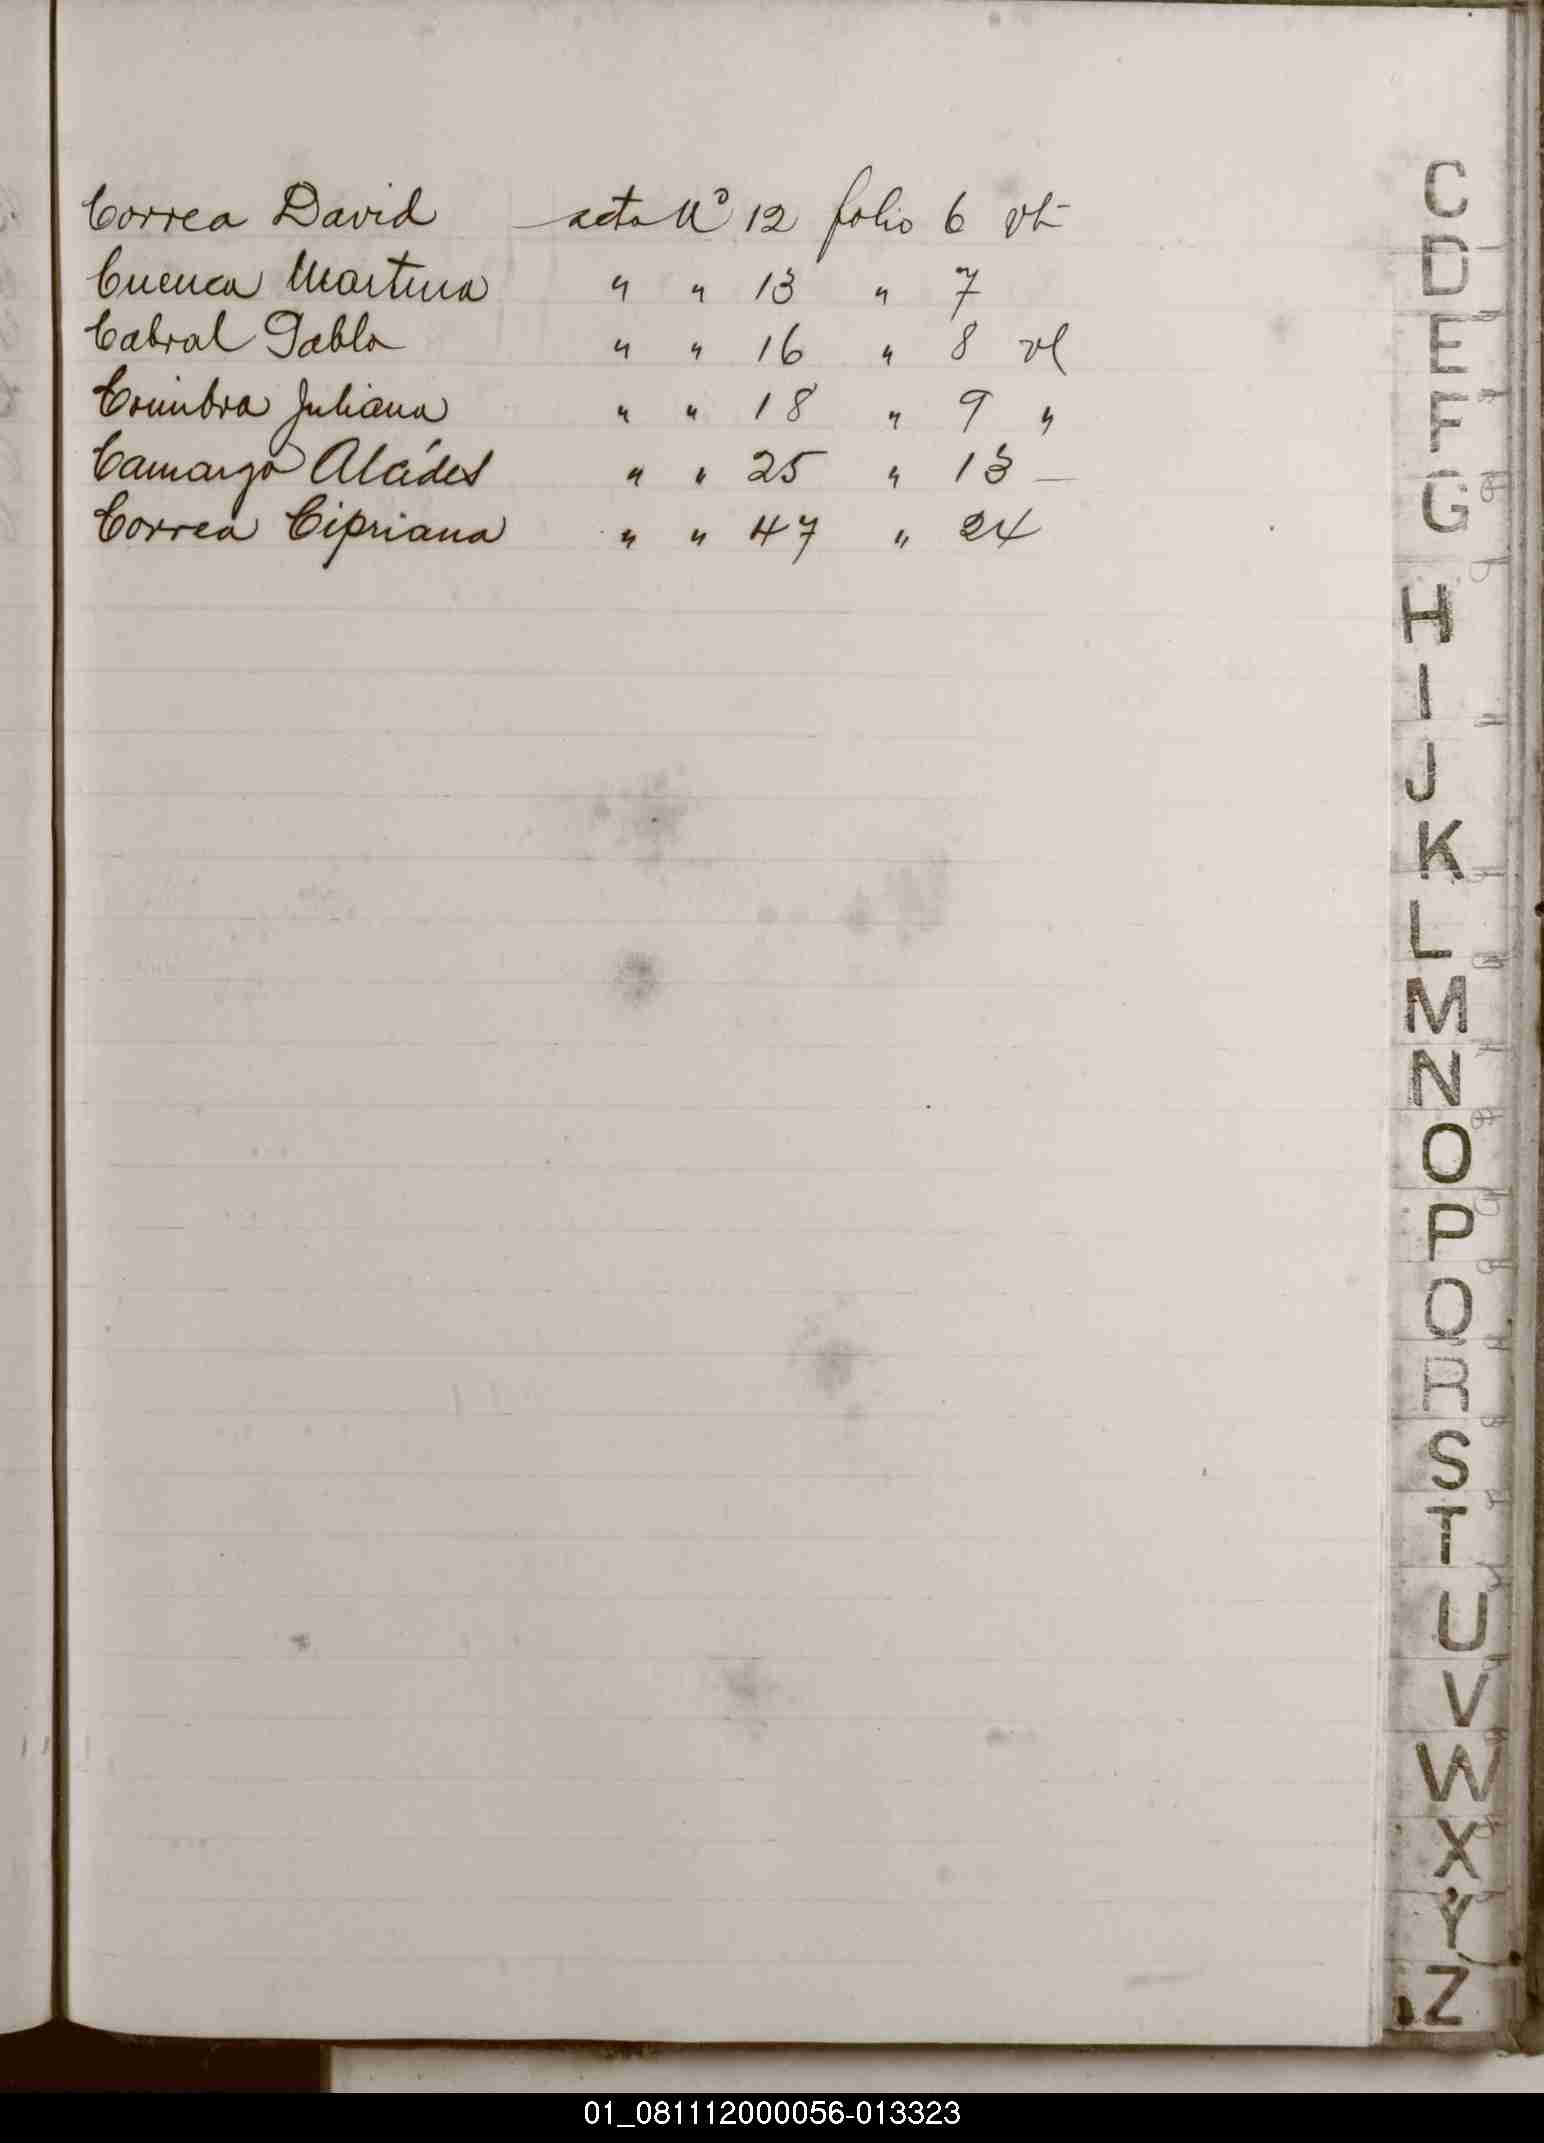 Correa David acta Nº 12 folio 6 vt
Cuenca Martina " " 13 " 7
Cabral Pablo " " 16 " 8 vt
Coimbra Juliana " " 18 " 9 "
Camargo Alcídes " " 25 " 13 —
Correa Cipriana " " 47 " 24
C
D
E
F
G
H
I
J
K
L
M
N
O
P
Q
R
S
T
U
V
W
X
Y
Z
01_081112000056-013323